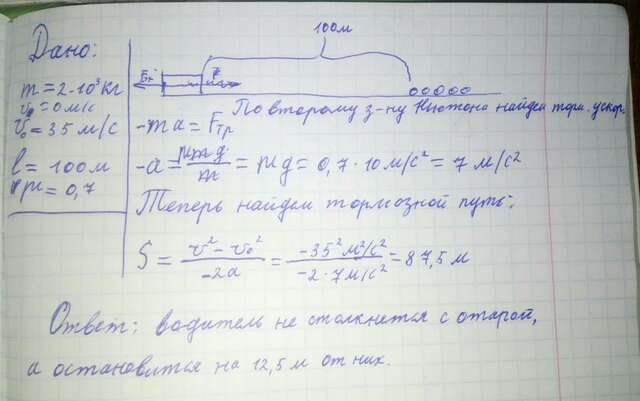 100м
Дано:
Fтр F
m = 2·10³кг
v = 0 м/с
v₀ = 35 м/с
l = 100м
μ = 0,7
По второму з-ну Ньютона найдем торм. ускор.
-ma = Fтр
-a = μmg/m = μg = 0,7·10 м/с² = 7 м/с²
Теперь найдем тормозной путь:
S = v² - v₀²/-2a = -35² м²/с²/-2·7м/с² = 87,5 м
Ответ: водитель не столкнется с отарой,
а остановится на 12,5 м от них.